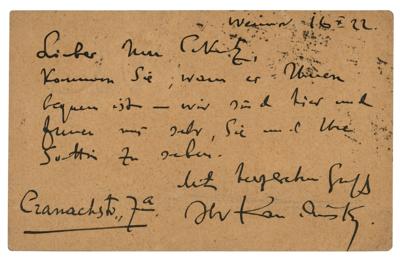 Weimar 16 X 22.
Lieber Herr
Kommen Sie, wann es Ihnen
bequem ist – wir sind hier und
freuen uns sehr, Sie und Ihre
Gattin zu sehen.
Mit herzlichem Gruss
Ihr Kandinsky.
Cranachstr., 7a.